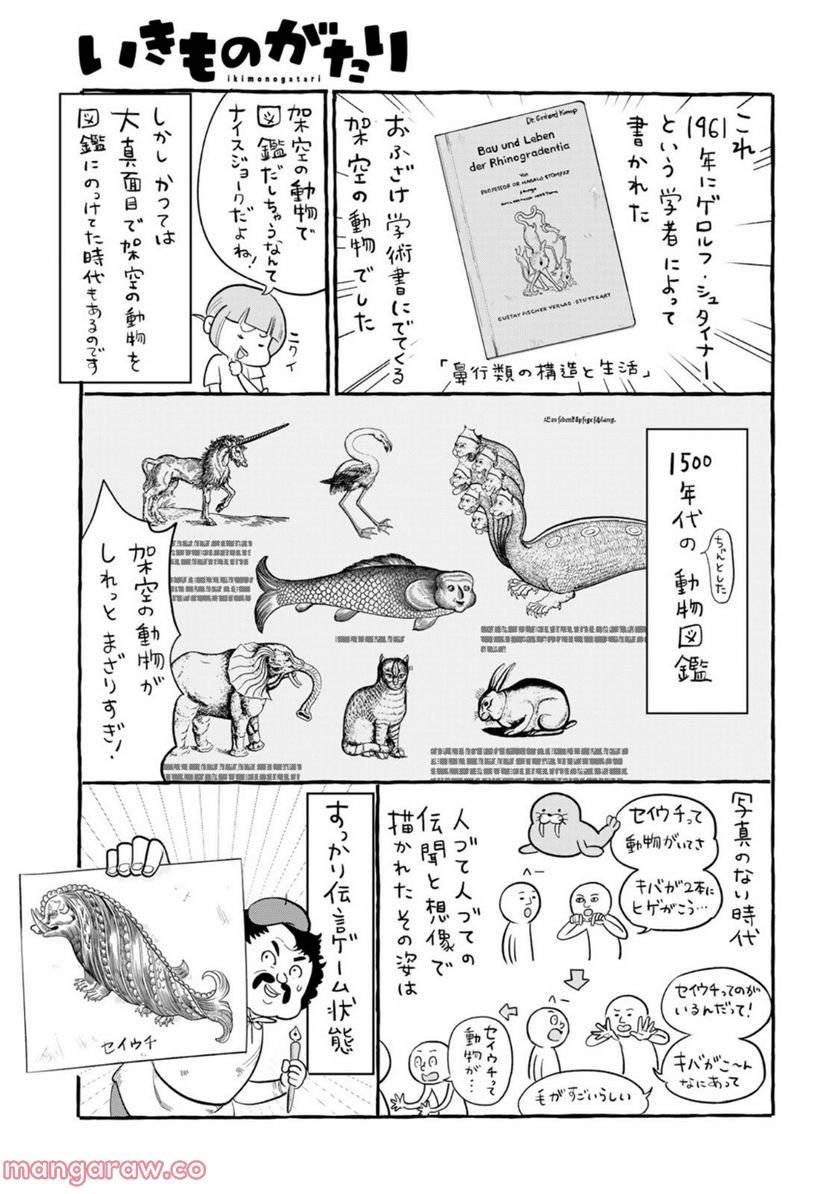 いきものがたり
ikimonogatari
これ
1961年にゲロルフ・シュタイナー
という学者によって
書かれた
Bau und Leben
der Rhinogradentia
GUSTAV FISCHER VERLAG・STUTTGART
「鼻行類の構造と生活」
おふざけ学術書にでてくる
架空の動物でした
架空の動物で
図鑑だしちゃうなんて
ナイスジョークだよね!
ニクイ
しかしかつては
大真面目で架空の動物を
図鑑にのっけてた時代もあるのです
1500年代の動物図鑑
ちゃんとした
架空の動物が
しれっとまざりすぎ!
写真のない時代
セイウチって
動物がいてさ
キバが2本に
ヒゲがこう…
へー
セイウチってのが
いるんだって!
キバがこ〜ん
なにあって
へー
毛がすごいらしい
セイウチって
動物が…
人づて人づての
伝聞と想像で
描かれたその姿は
すっかり伝言ゲーム状態
セイウチ
mangaraw.co